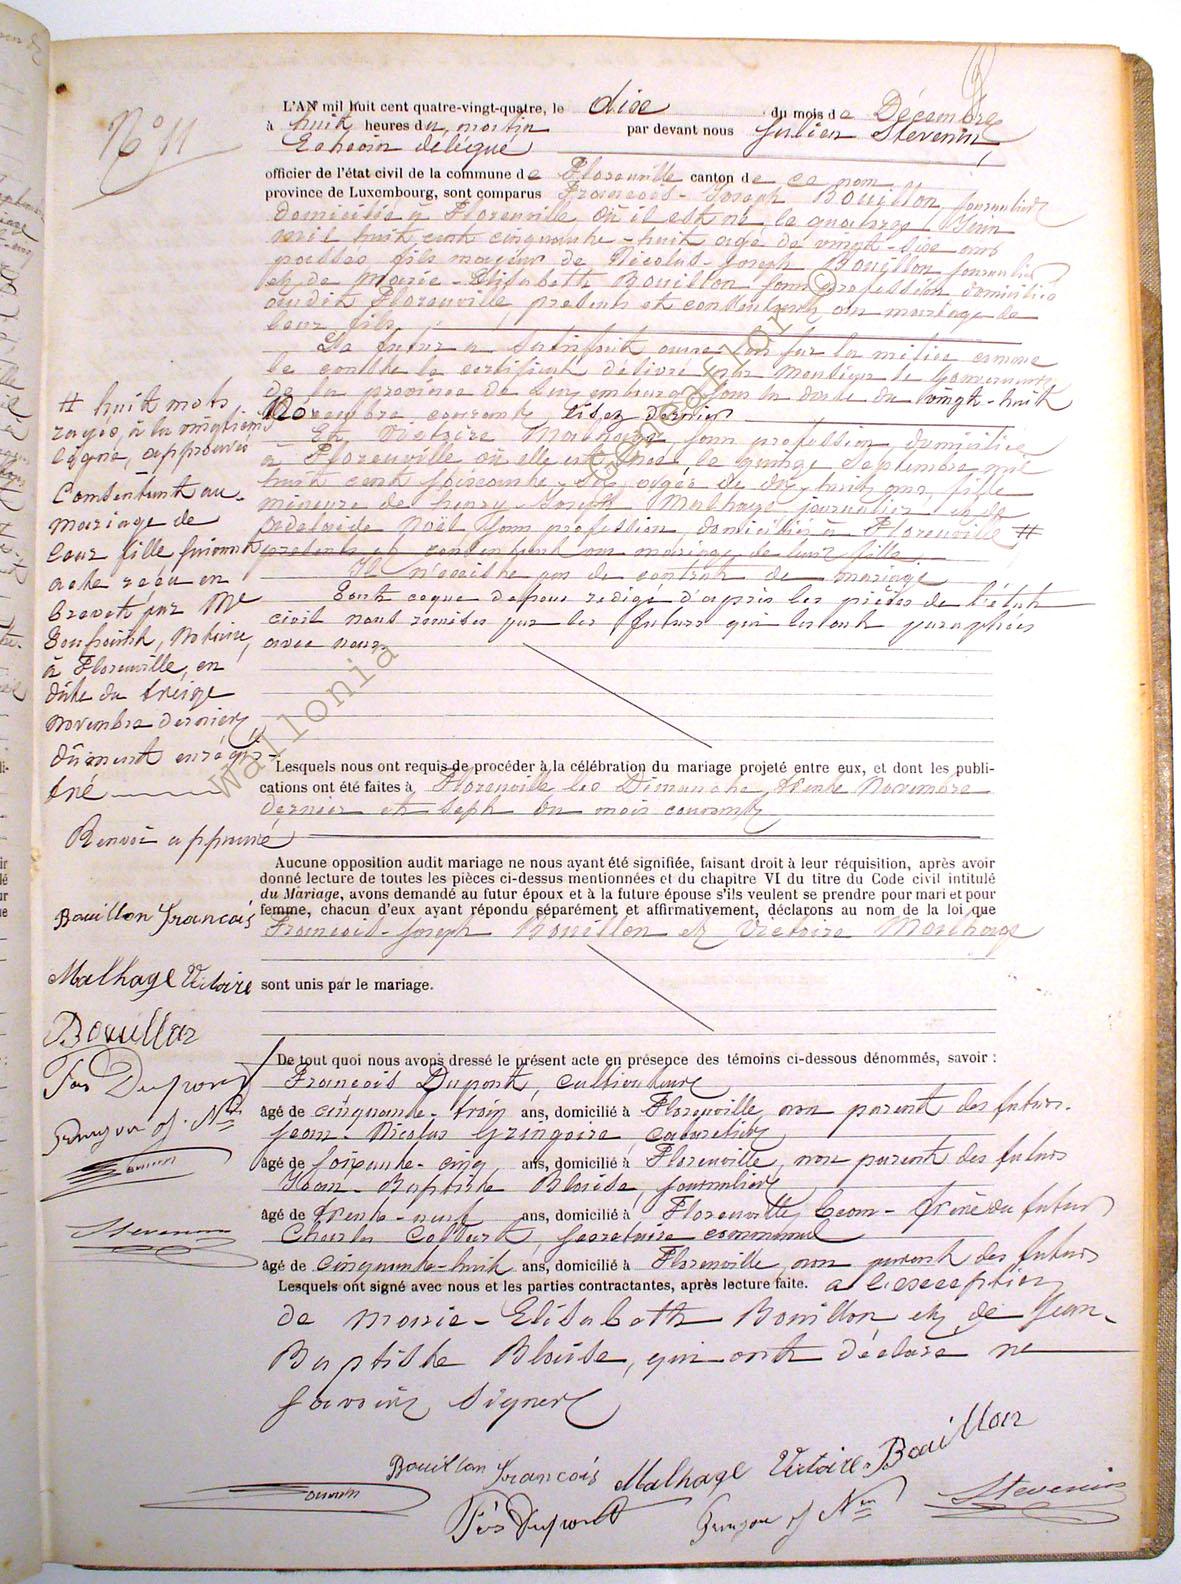 N° 11
L'AN mil huit cent quatre-vingt-quatre, le dix du mois de Décembre
à huit heures du matin par devant nous Julien Stevenin,
Echevin délégué
officier de l'état civil de la commune de Florenville canton de ce nom
province de Luxembourg, sont comparus François-Joseph Bouillon, journalier
domicilié à Florenville où il est né le quatorze Juin
mil huit cent cinquante-huit agé de vingt-six ans
passés fils majeur de Nicolas-Joseph Bouillon journalier
et de Marie-Elisabeth Bouillon sans profession domiciliés
audit Florenville, présents et consentants au mariage de
leur fils.
Le futur a satisfait aux lois sur la milice comme
le constate le certificat délivré par Monsieur le Gouverneur
de la province de Luxembourg sous la date du vingt-huit
Novembre courant, lisez dernier
Et Victoire Malhage, sans profession, domiciliée
à Florenville où elle est née, le quinze Septembre mil
huit cent soixante-six, agée de dix-huit ans, fille
mineure de henry-Joseph Malhage journalier et de
Noël sans profession, domiciliés à Florenville #
présents et consentant au mariage de leur fille
Il n'existe pas de contrat de mariage
Tout ce que dessus rédigé d'après les pièces de l'état
civil nous remises par les futurs qui les ont paraphées
avec nous.
# huit mots
rayés, à la vingtième
ligne, approuvés
Consentant au
mariage de
leur fille suivant
acte reçu en
brevet par Me
notaire,
à Florenville, en
date du treize
novembre dernier,
dûment enrégis-
tré
Renvoi approuvé
Bouillon françois
Malhage Victoire
Bouillon
Fois Dupont
Stevenin
Lesquels nous ont requis de procéder à la célébration du mariage projeté entre eux, et dont les publi-
cations ont été faites à Florenville les Dimanche, trente Novembre
dernier et sept du mois courant,
Aucune opposition audit mariage ne nous ayant été signifiée, faisant droit à leur réquisition, après avoir
donné lecture de toutes les pièces ci-dessus mentionnées et du chapitre VI du titre du Code civil intitulé
du Mariage, avons demandé au futur époux et à la future épouse s'ils veulent se prendre pour mari et pour
femme, chacun d'eux ayant répondu séparément et affirmativement, déclarons au nom de la loi que
François-Joseph Bouillon et Victoire Malhage
sont unis par le mariage.
De tout quoi nous avons dressé le présent acte en présence des témoins ci-dessous dénommés, savoir :
François Dupont, cultivateur
âgé de cinquante-trois ans, domicilié à Florenville, non parent des futurs.
Jean-Nicolas Gringoire, cabaretier
âgé de soixante-cinq ans, domicilié à Florenville, non parent des futurs
Jean-Baptiste Blaise, journalier
âgé de trente-neuf ans, domicilié à Florenville beau-frère du futur
Charles Collart, secrétaire communal
âgé de cinquante-huit ans, domicilié à Florenville, non parent des futurs
Lesquels ont signé avec nous et les parties contractantes, après lecture faite. a l'exception
de Marie-Elisabeth Bouillon et de Jean-
Baptiste Blaise, qui ont déclaré ne
savoir signer
Bouillon françois Malhage Victoire Bouillon
Fois Dupont
Stevenin
Wallonia